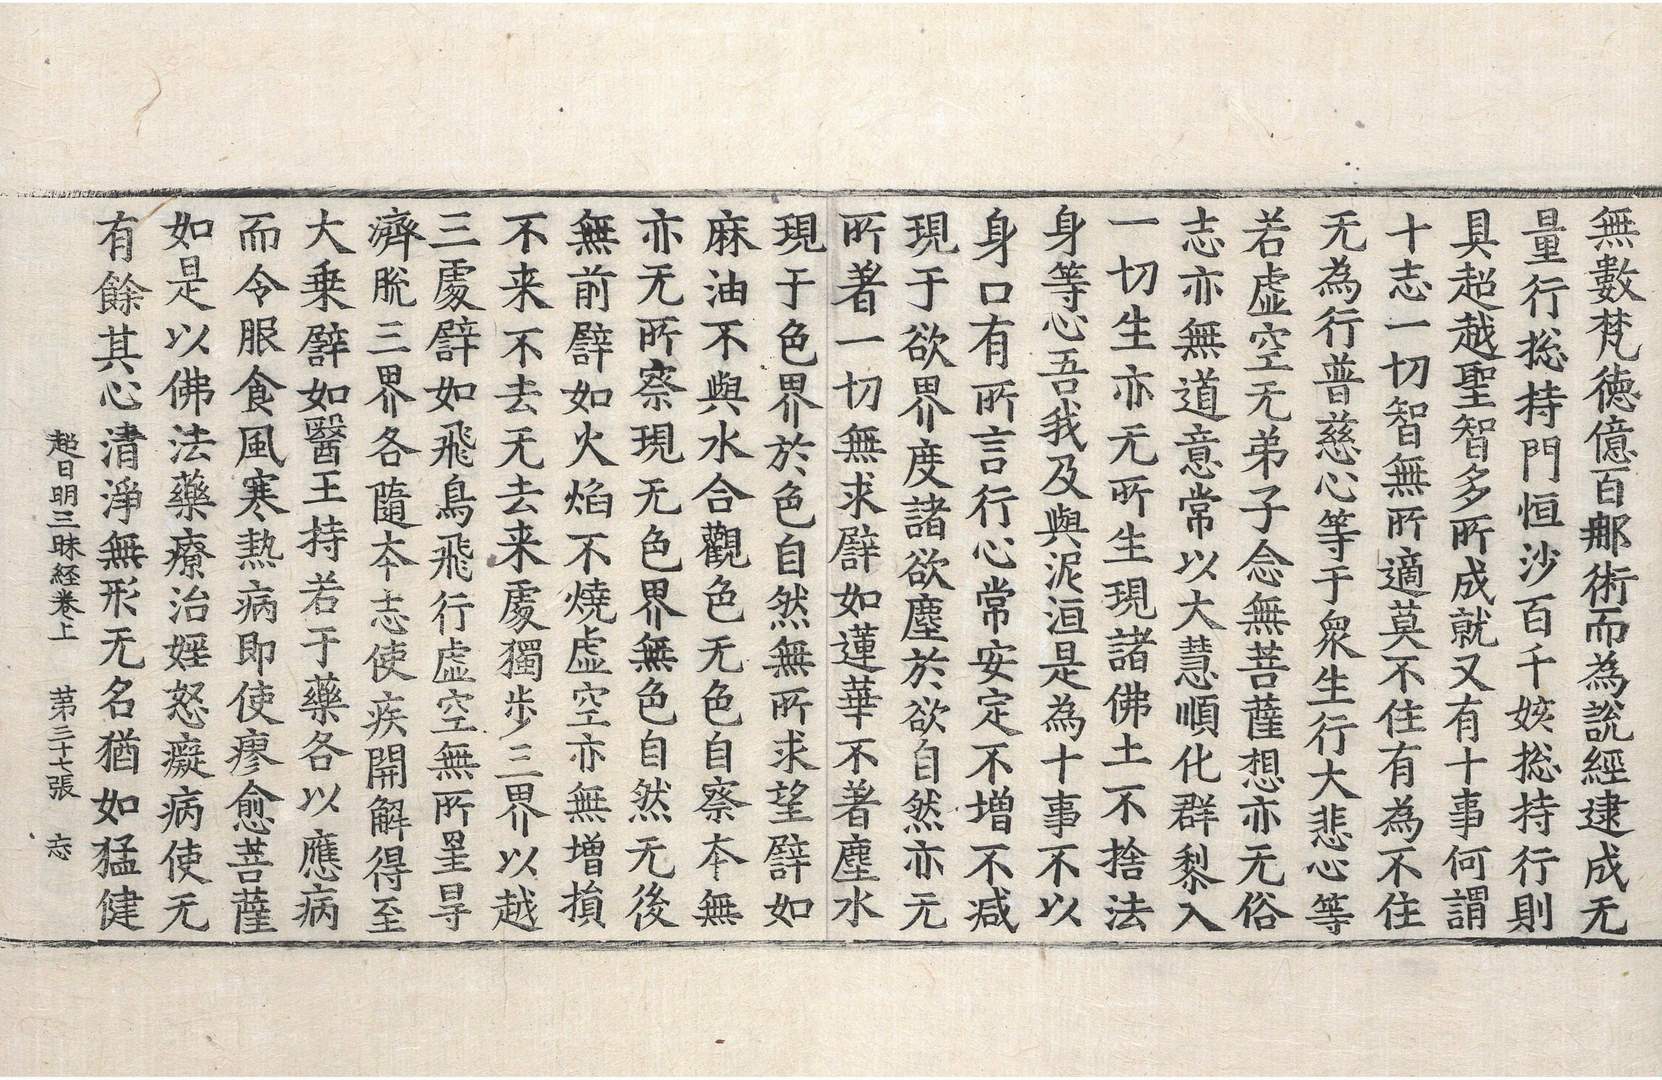 無數梵德億百那術而為說經逮成无
量行揔持門恒沙百千姟揔持行則
具超越聖智多所成就又有十事何謂
十志一切智無所適莫不住有為不住
无為行普慈心等于衆生行大悲心等
若虛空无弟子念無菩薩想亦无俗
志亦無道意常以大慧順化群黎入
一切生亦无所生現諸佛土不捨法
身等心吾我及與泥洹是為十事不以
身口有所言行心常安定不增不减
現于欲界度諸欲塵於欲自然亦无
所著一切無求譬如蓮華不著塵水
現于色界於色自然無所求望譬如
麻油不與水合觀色无色自察本無
亦无所察現无色界無色自然无後
無前譬如火焰不燒虛空亦無增損
不来不去无去来處獨步三界以越
三處譬如飛鳥飛行虛空無所罣㝵
濟脫三界各隨本志使疾開解得至
大乗譬如醫王持若于藥各以應病
而令服食風寒熱病即使瘳愈菩薩
如是以佛法藥療治婬怒癡病使无
有餘其心清淨無形无名猶如猛健
超日明三昧経卷上　第三十七張　志